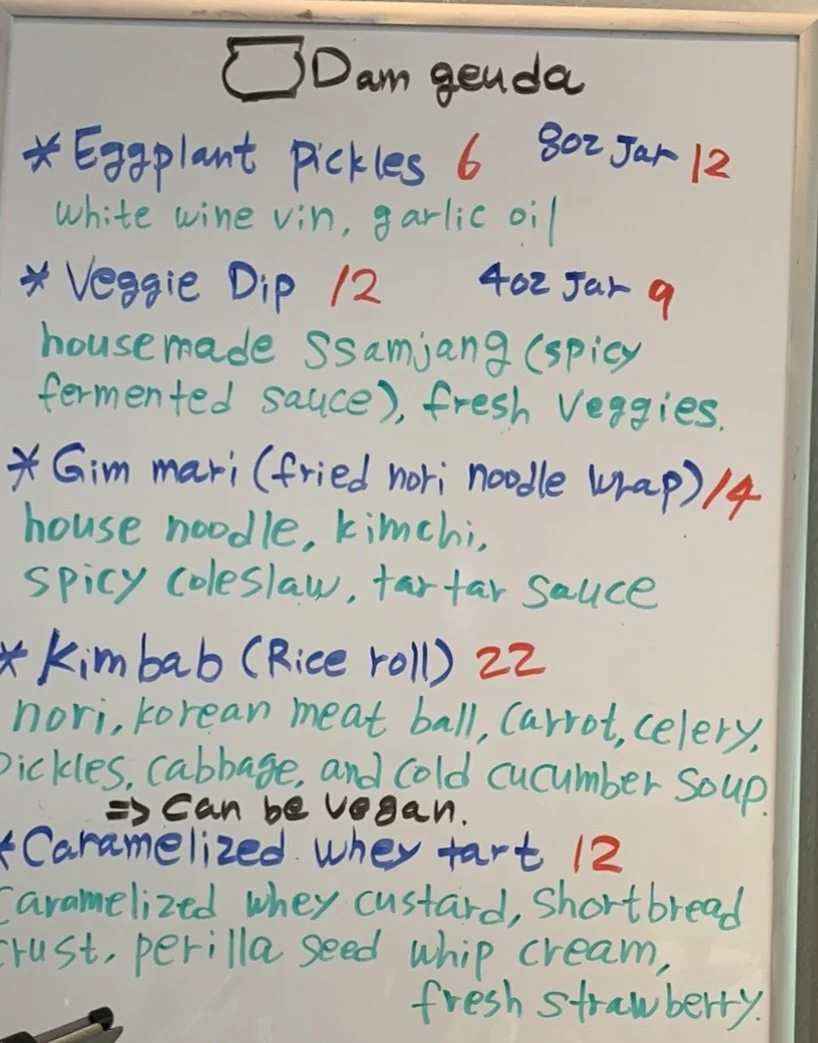 Dam geuda
* Eggplant pickles 6 8oz Jar 12
white wine vin, garlic oil
* Veggie Dip 12 4oz Jar 9
housemade Ssamjang (spicy
fermented sauce), fresh Veggies.
* Gim mari (fried nori noodle wrap) 14
house noodle, kimchi,
spicy coleslaw, tartar sauce
* Kimbab (Rice roll) 22
nori, korean meat ball, carrot, celery,
pickles, cabbage, and cold cucumber soup.
=> Can be vegan.
* Caramelized whey tart 12
Caramelized whey custard, shortbread
crust, perilla seed whip cream,
fresh strawberry.